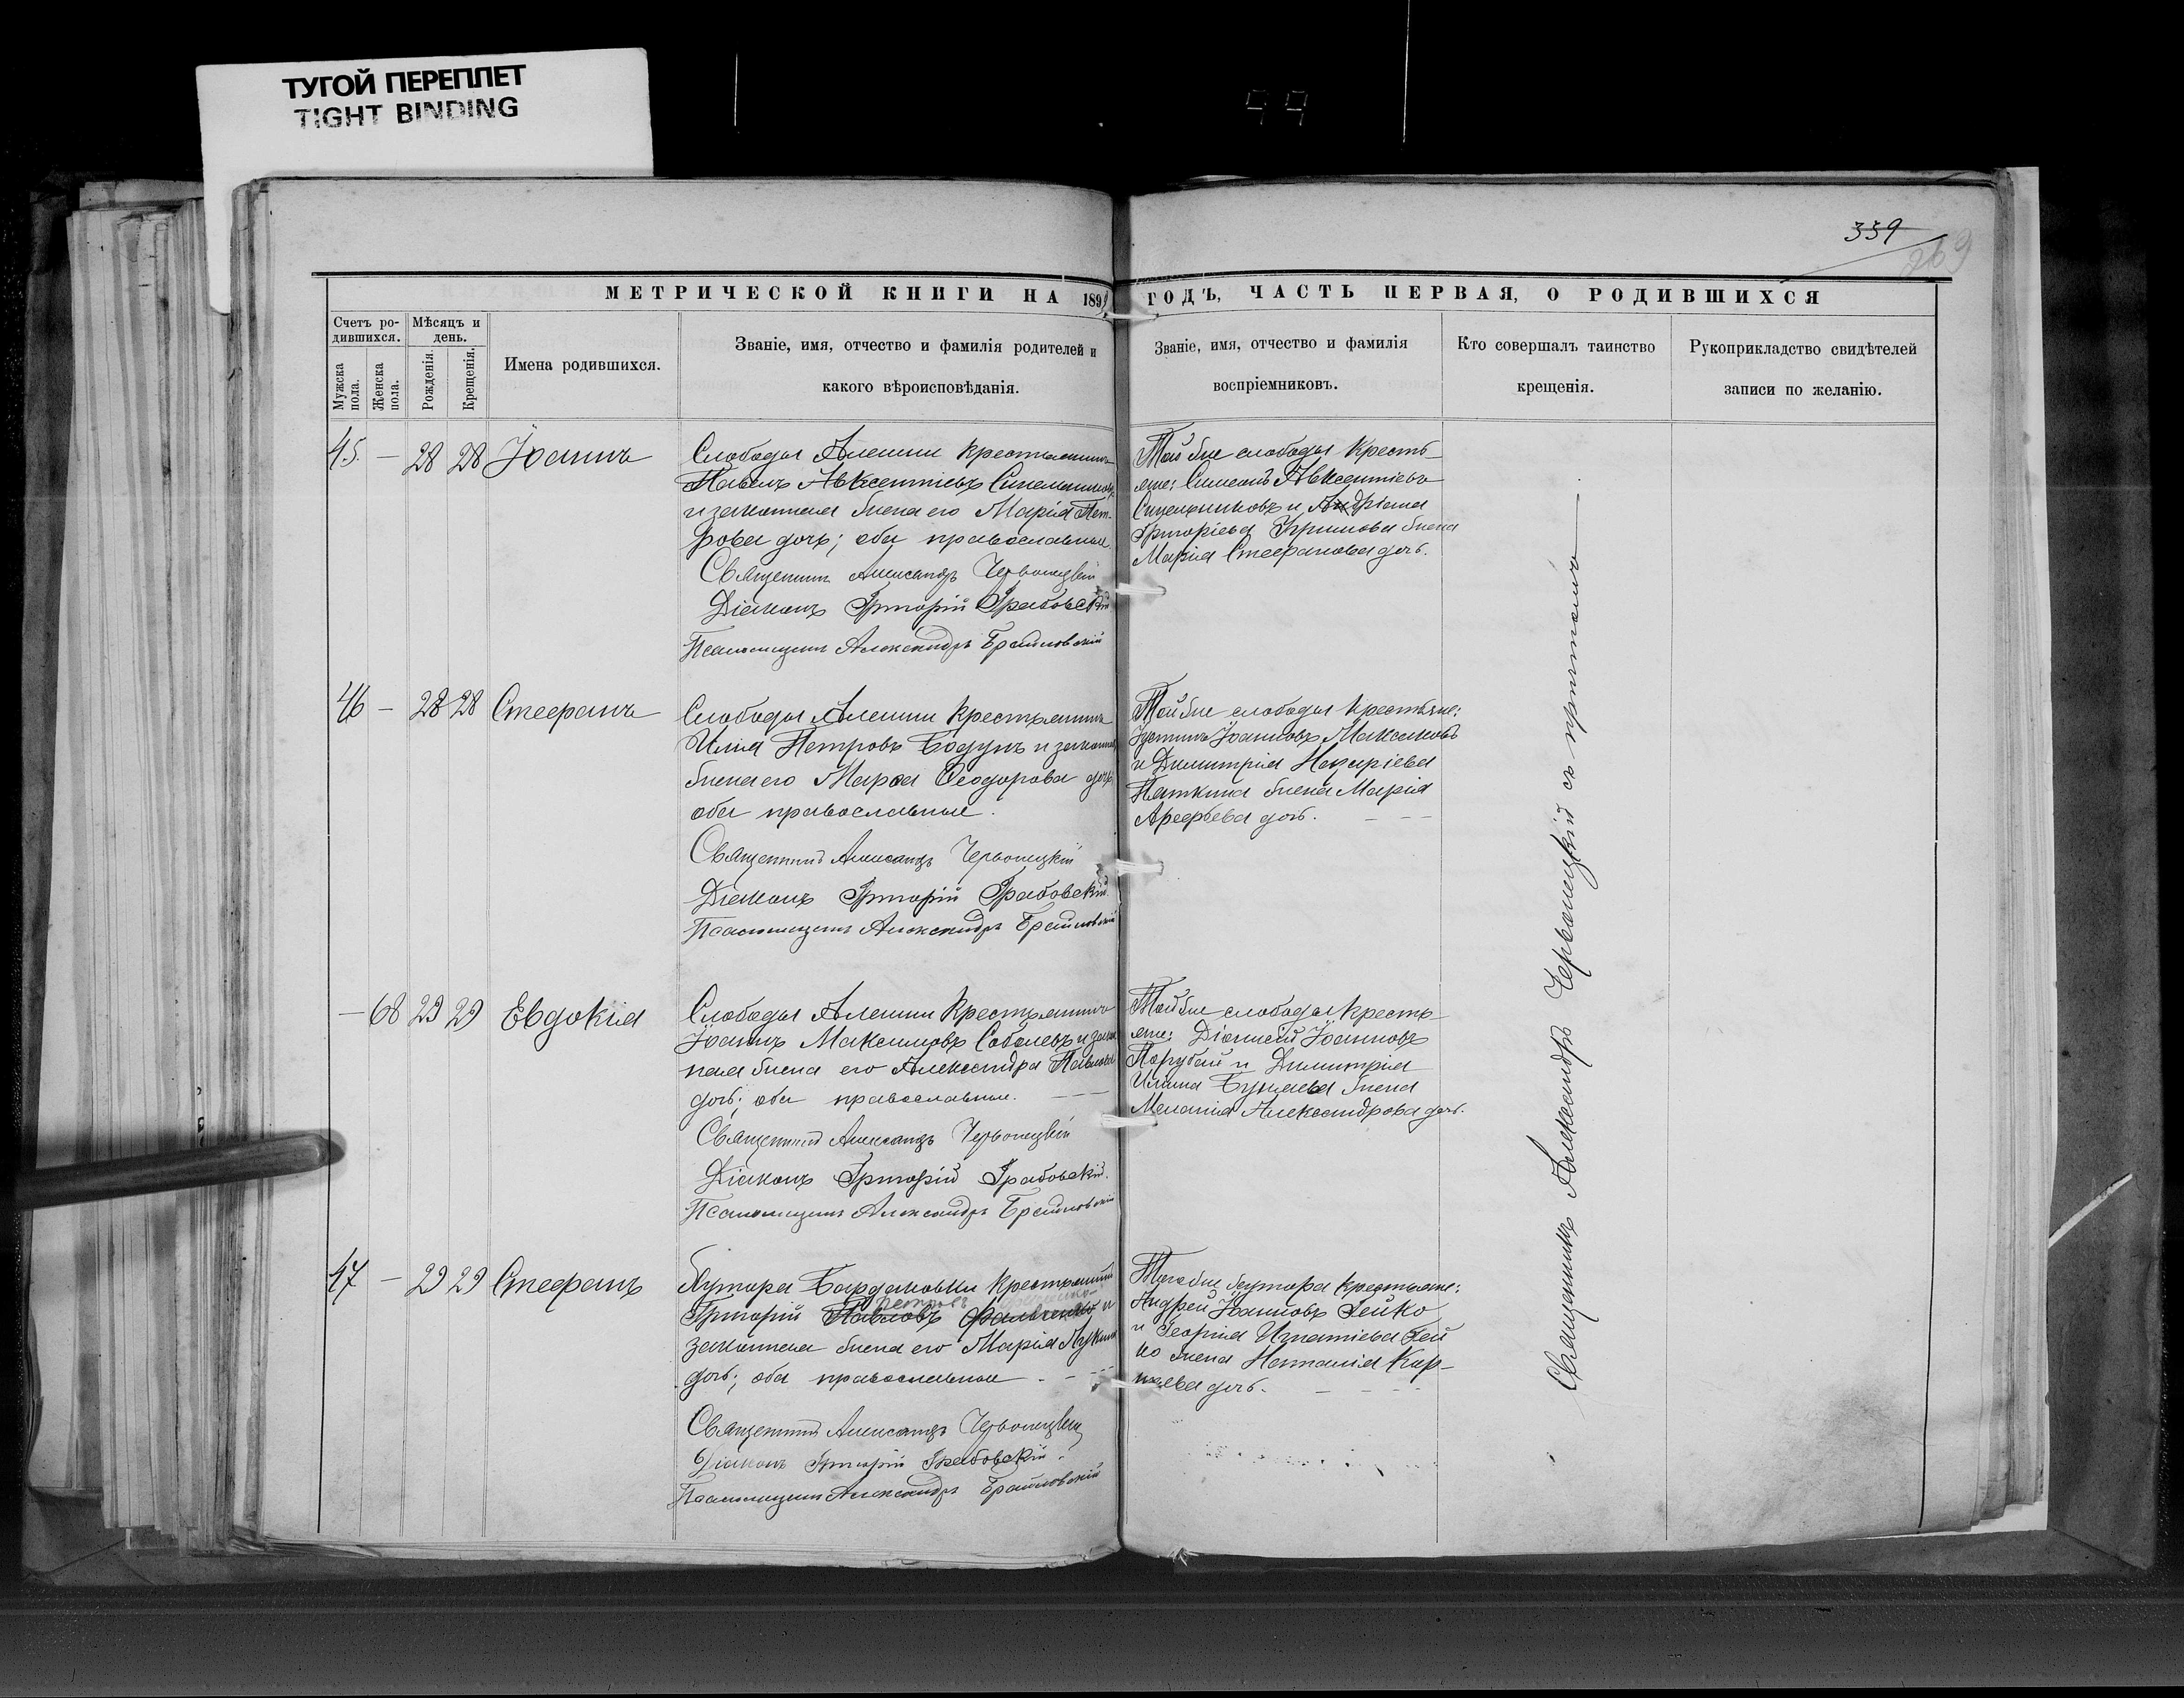 ТУГОЙ ПЕРЕПЛЕТ
TIGHT BINDING
339
269
МЕТРИЧЕСКОЙ КНИГИ НА 189 ГОДЪ, ЧАСТЬ ПЕРВАЯ, О РОДИВШИХСЯ
Счетъ ро-
дившихся.
Мужска
пола.
Женска
пола.
Мѣсяцъ и
день.
Рожденія.
Крещенія.
Имена родившихся.
Званіе, имя, отчество и фамилія родителей и
какого вѣроисповѣданія.
Званіе, имя, отчество и фамилія
воспріемниковъ.
Кто совершалъ таинство
крещенія.
Рукоприкладство свидѣтелей
записи по желанію.
45. — 28 28 Іоаннъ
Слободы Алешни крестьянинъ
Павелъ Авксентіевъ
и законная жена его Марія Пет-
рова дочь; оба православные.
Священникъ Александръ Червонецкій
Діаконъ Григорій Грабовскій
Псаломщикъ Александръ Браиловскій
Той же слободы кресть-
яне: Симеонъ Авксентіевъ
и Андріана
Григоріева жена
Марія Стефанова дочь.
46 — 28 28 Стефанъ
Слободы Алешни крестьянинъ
Илія Петровъ Бодунъ и законная
жена его Марѳа Ѳеодорова дочь
оба православные.
Священникъ Александръ Червонецкій
Діаконъ Григорій Грабовскій
Псаломщикъ Александръ Браиловскій
Той же слободы крестьяне:
Іустинъ Іоанновъ
и Димитрія Назаріева
жена Марія
Арефьева дочь.
— 68 29 29 Евдокія
Слободы Алешни крестьянинъ
Іоаннъ Максимовъ Соболевъ и закон
ная жена его Александра Павлова
дочь; оба православные.
Священникъ Александръ Червонецкій
Діаконъ Григорій Грабовскій.
Псаломщикъ Александръ Браиловскій
Той же слободы кресть-
яне: Діонисій Іоанновъ
Порубай и Димитрія
Ильина жена
Меланія Александрова дочь.
47 — 29 29 Стефанъ
Хутора Бардаковки крестьянинъ
Петровъ
Григорій Павловъ и
законная жена его Марія
дочь; оба православные
Священникъ Александръ Червонецкій
Діаконъ Григорій Грабовскій.
Псаломщикъ Александръ Браиловскій
Того же хутора крестьяне:
Андрей Іоанновъ Гейко
и Георгія Игнатіева Гей
ко жена Наталія Кар-
пова дочь.
Священникъ Александръ Червонецкій съ причтомъ